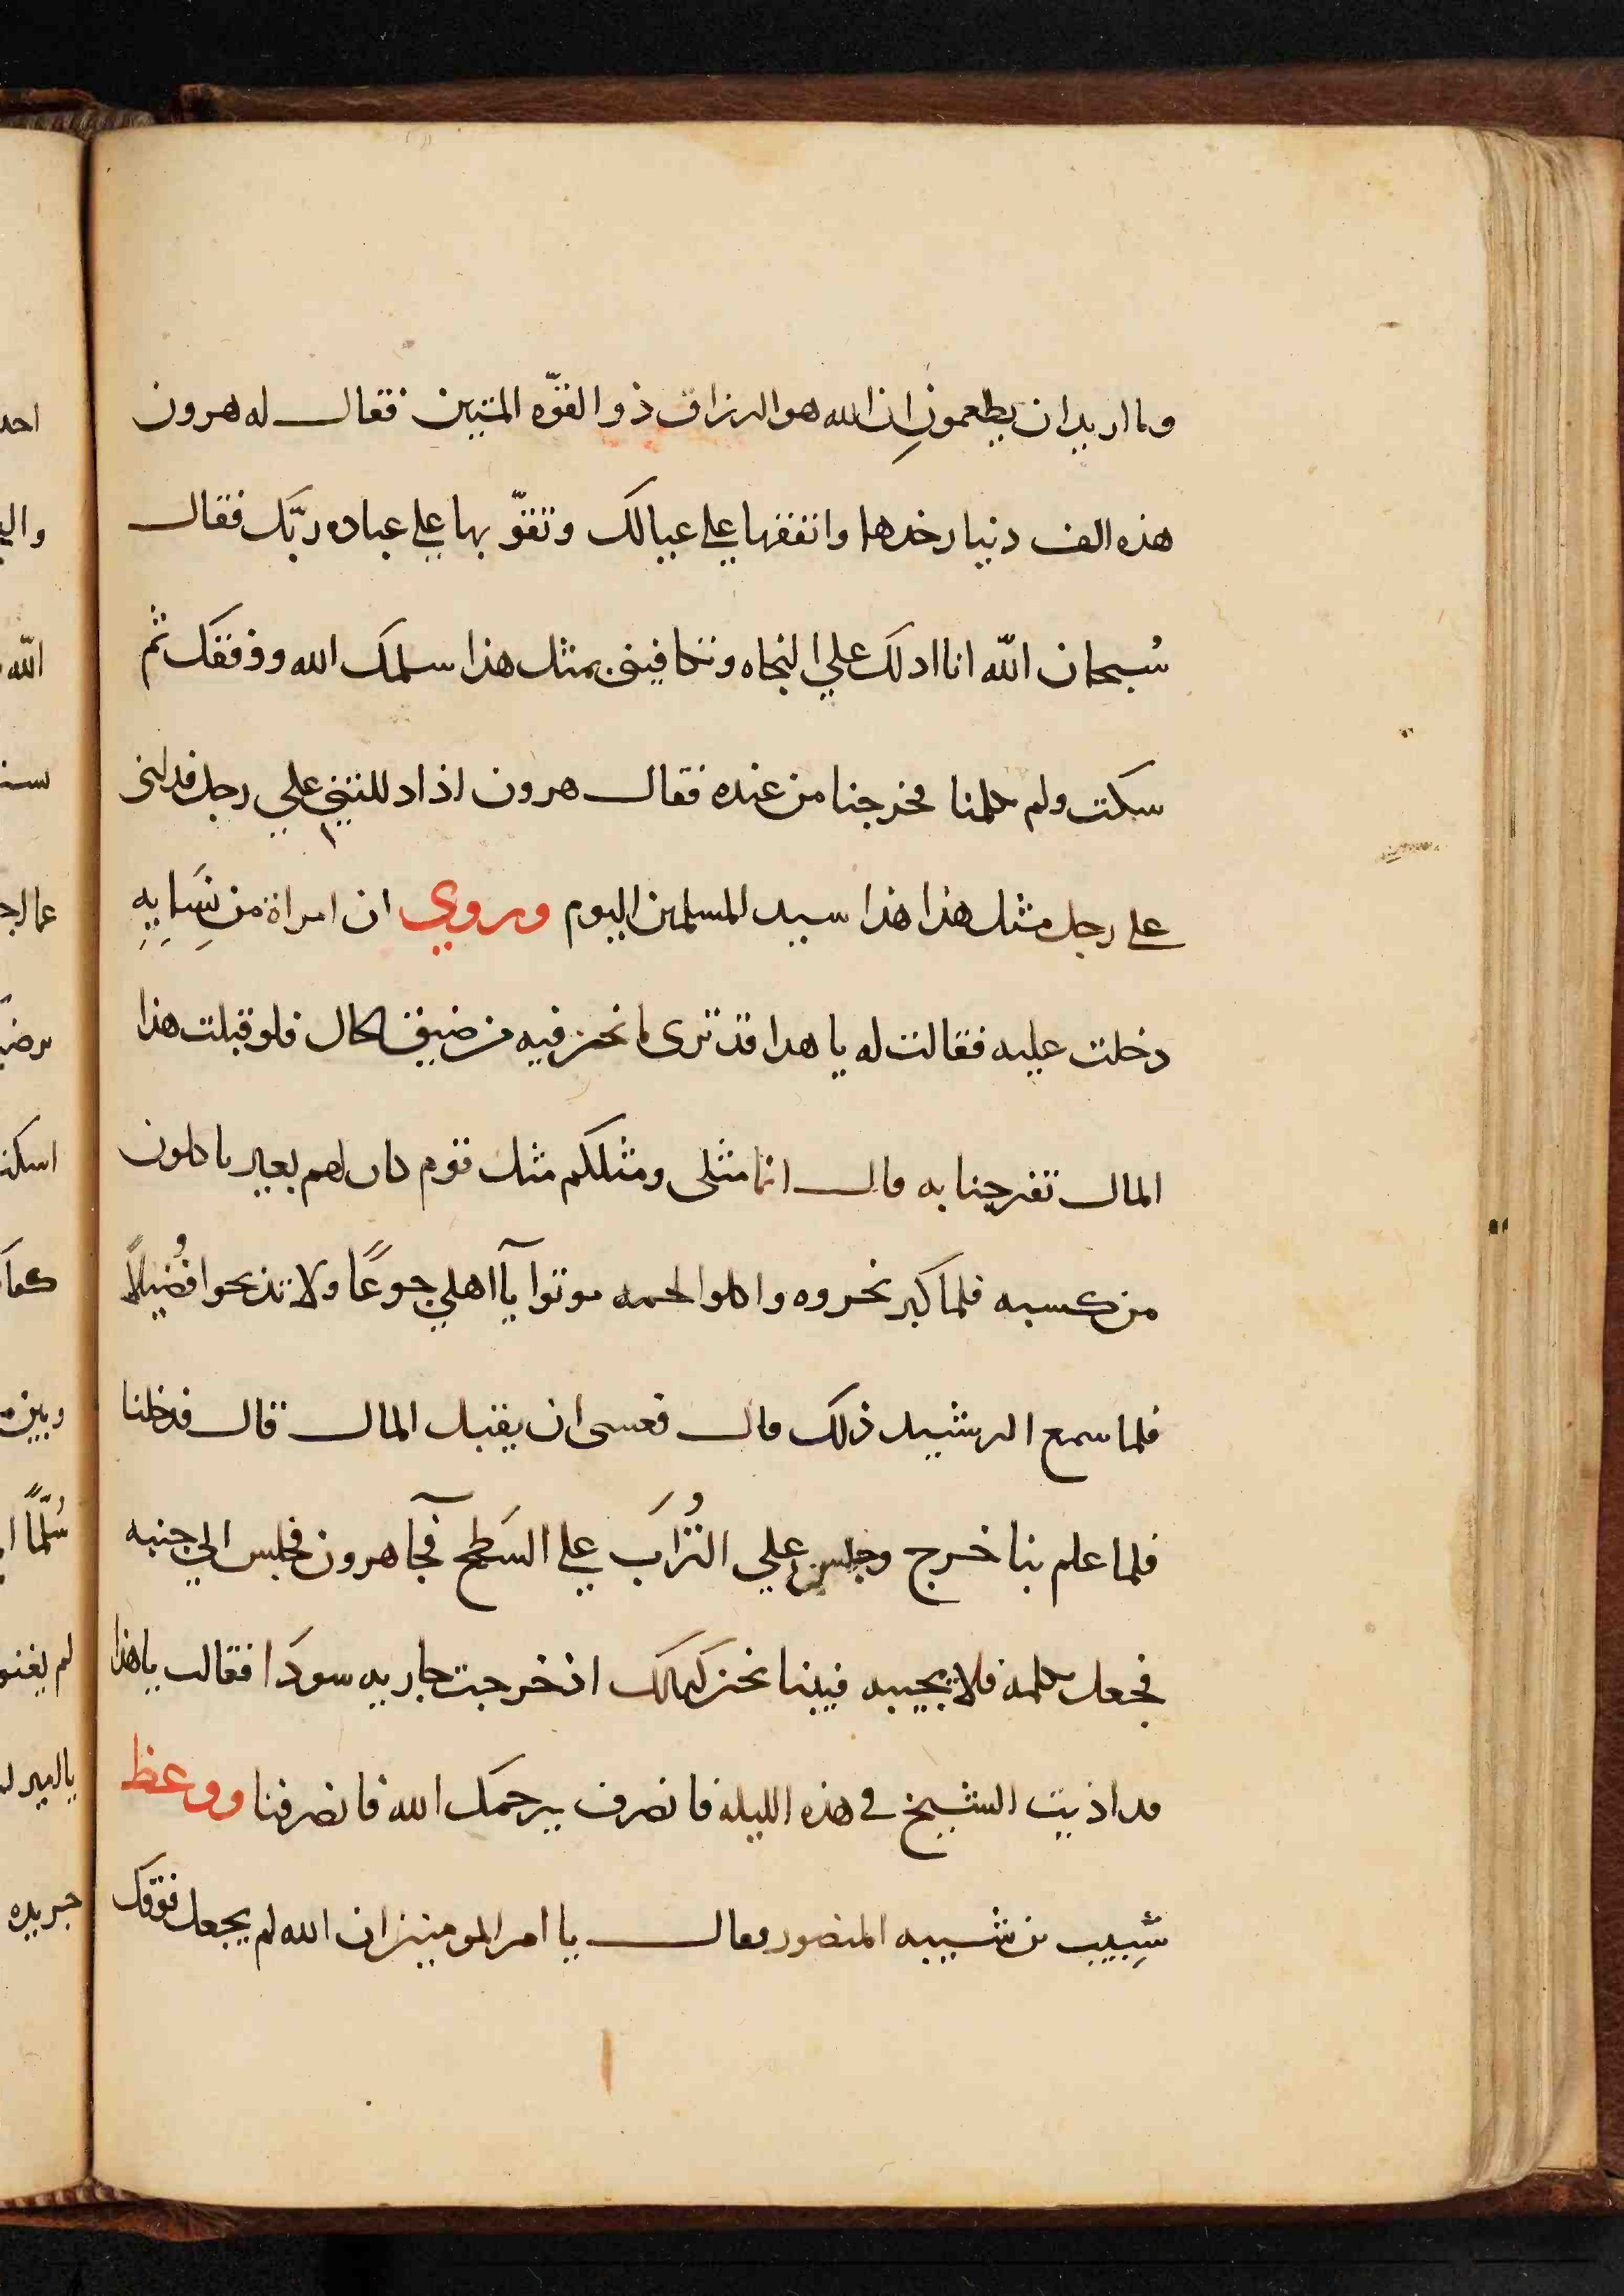 وما اريد ان يطعمونِ اِن الله هو الرزاق ذو القوّه المتين فقال له هرون
هذه الف دينار خذها وانفقها علي عيالك وتقوّ بها علي عباده ربّك فقال
سُبحان الله انا ادلك علي النجاه وتكافيني بمثل هذا سلمك الله ووفقك ثم
سكت ولم يكلمنا فخرجنا من عنده فقال هرون اذا دللتني علي رجل فدلني
علي رجل مثل هذا هذا سيد المسلمين اليوم وروي ان امراة من نَسِايِهِ
دخلت عليه فقالت له يا هدا قد تري ما نحن فيه من ضيق الحال فلو قبلت هذا
المال تفرجنا به قال انما مثلي ومثلكم مثل قوم كان لهم بعير ياكلون
من كسبه فلما كبر نحروه واكلوا لحمه موتوا يآ اهلي جوعًا ولا تذبحوا فُضيلاً
فلما سمع الرشيد ذلك قال فعسى ان يقبل المال قال فدخلنا
فلما علم بنا خرج وجلس علي التُرَاب علي السَطح فجآ هرون فجلس الي جنبه
فجعل يكلمه فلا يجيبه فبينا نحن كذلك اذ خرجت جاريه سودَا فقالت يا هذا
قد اذيت الشيخ في هذه الليله فانصرف يرحمك الله فانصرفنا ووعظ
شَبِيب بن شيبه المنصور فقال يا امير المومنين ان الله لم يجعل فوقك